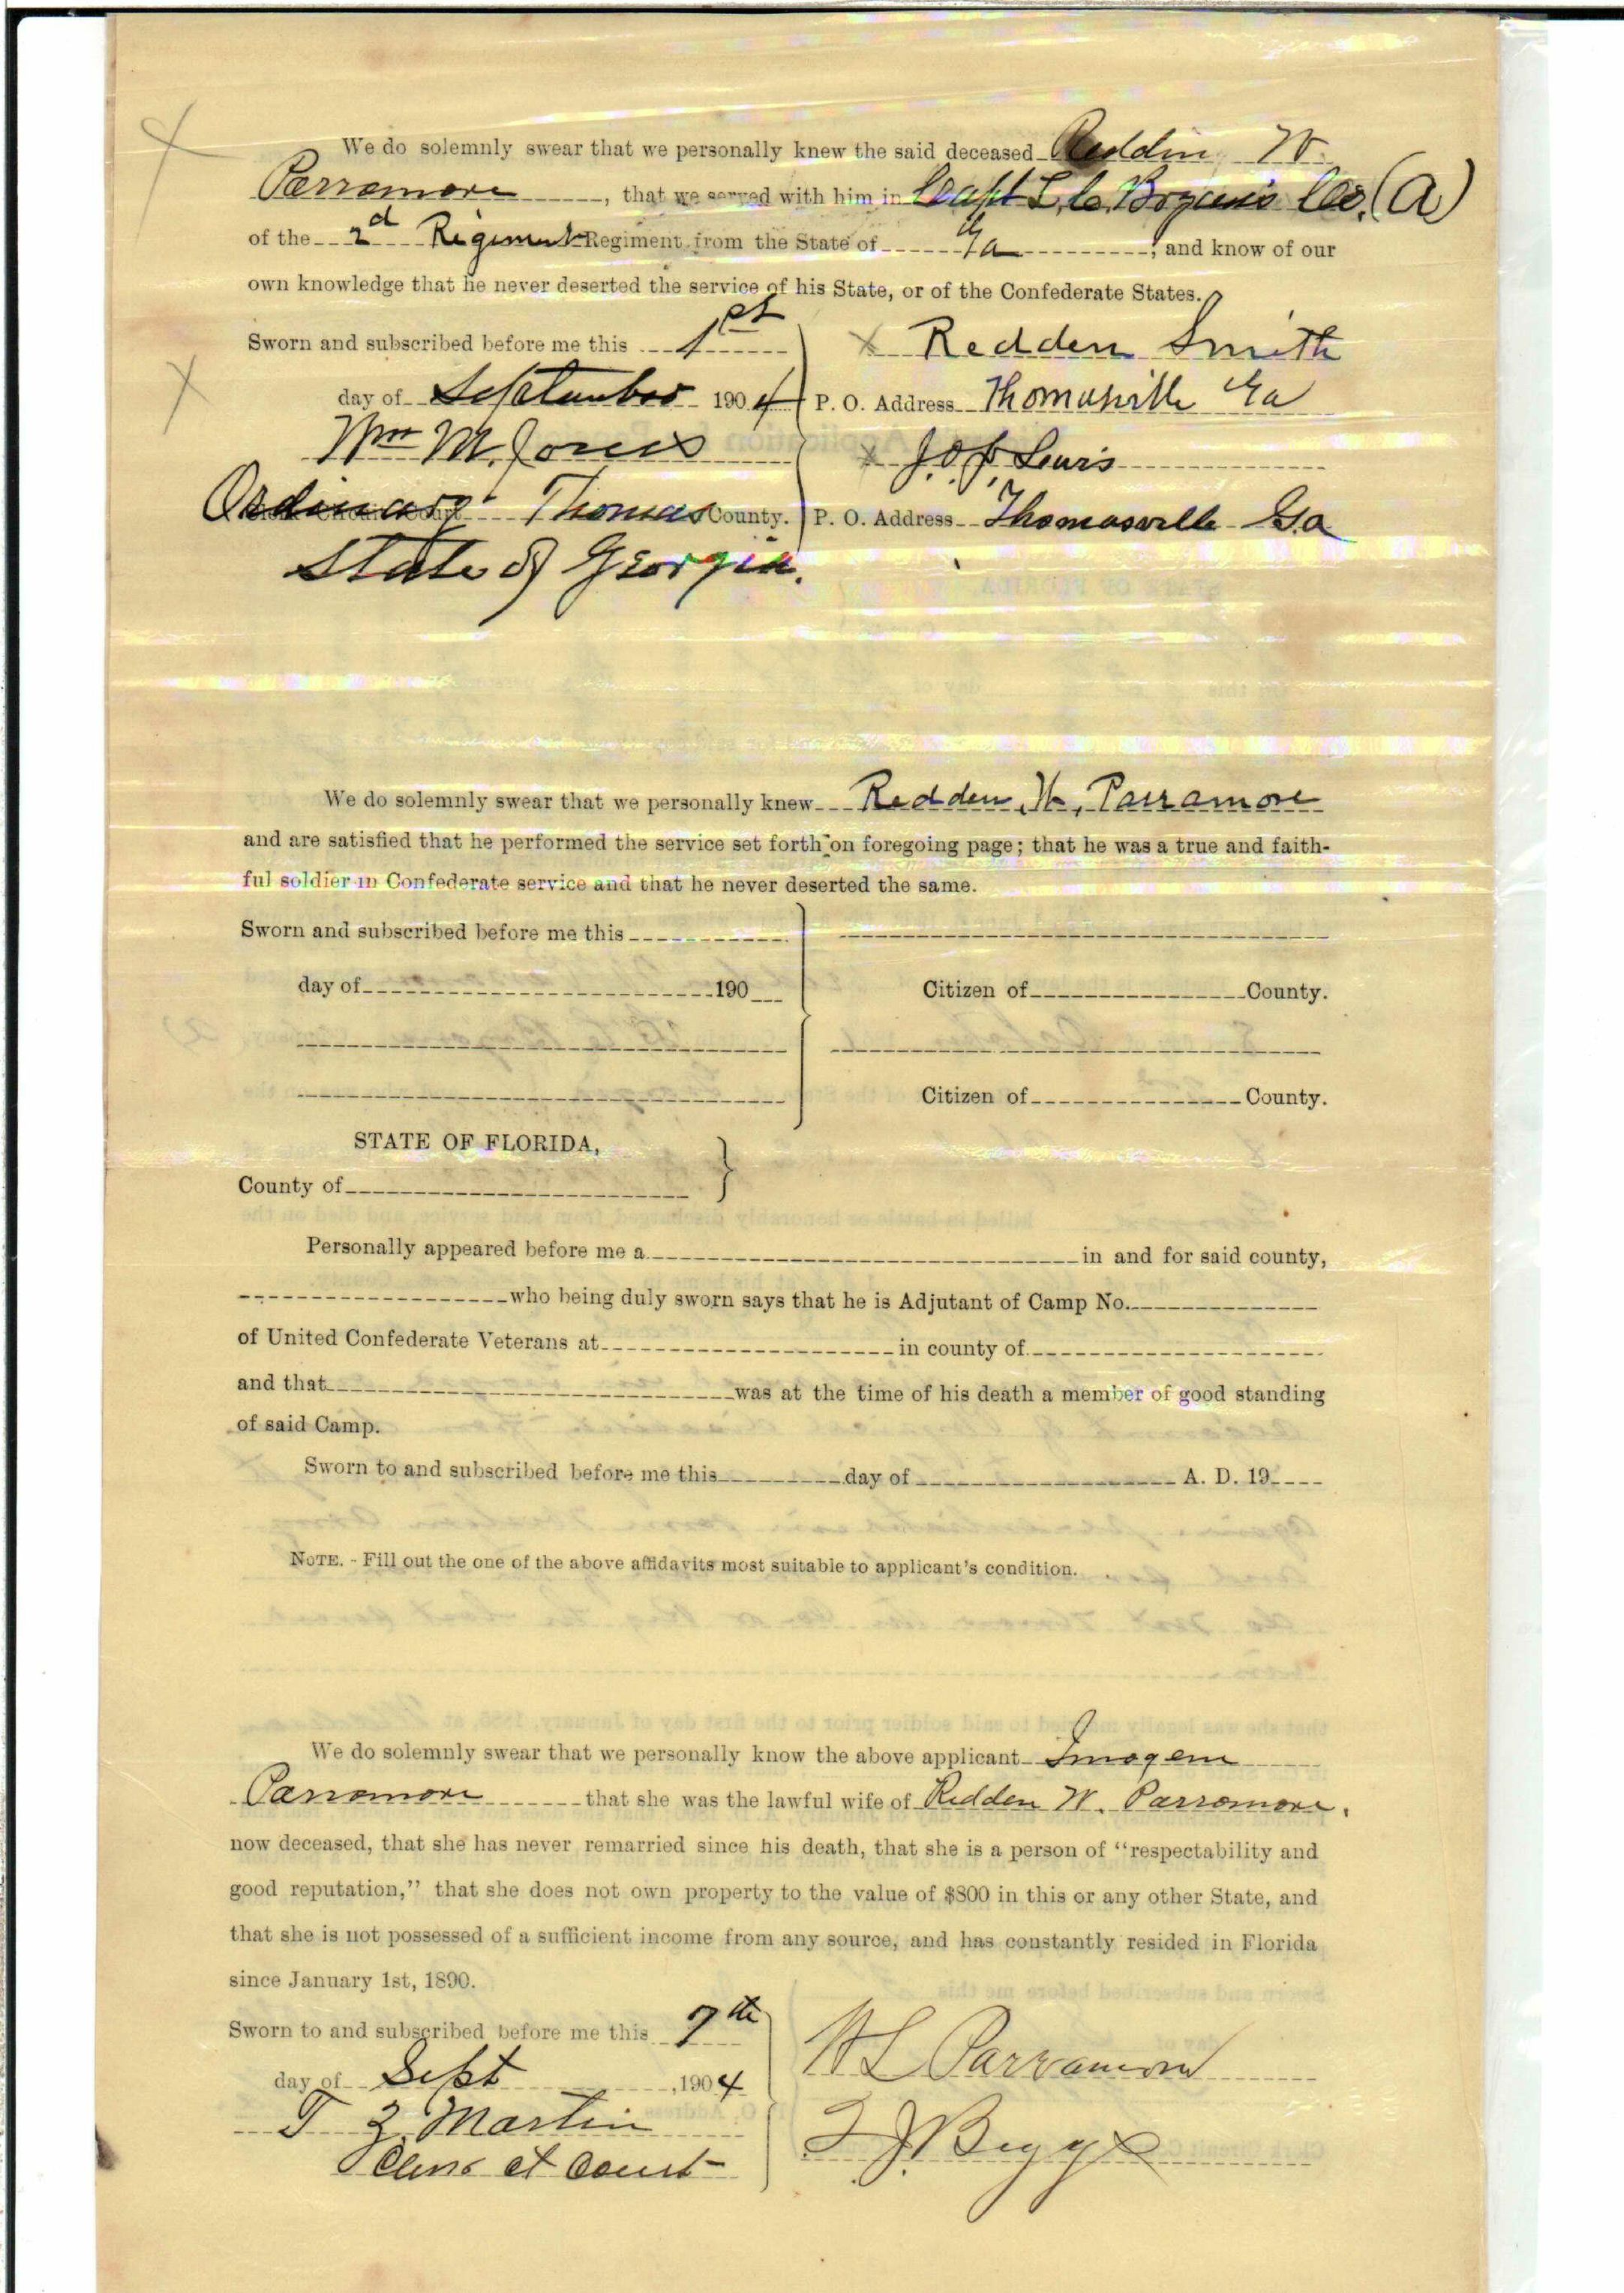 We do solemnly swear that we personally knew the said deceased Reddin W.
Parramore, that we served with him in Capt L. C. Bryan's Co. (A)
of the 2d Regiment Regiment from the State of Ga; and know of our
own knowledge that he never deserted the service of his State, or of the Confederate States.
Sworn and subscribed before me this 1st
day of September 1904
Wm M. Jones
Ordinary Thomas County.
State of Georgia.
x Redden Smith
P. O. Address Thomasville Ga
x J. O. J. Lewis
P. O. Address Thomasville Ga
We do solemnly swear that we personally knew Redden, W, Parramore
and are satisfied that he performed the service set forth on foregoing page; that he was a true and faith-
ful soldier in Confederate service and that he never deserted the same.
Sworn and subscribed before me this
day of 190
Citizen of County.
Citizen of County.
STATE OF FLORIDA,
County of
Personally appeared before me a in and for said county,
who being duly sworn says that he is Adjutant of Camp No.
of United Confederate Veterans at in county of
and that was at the time of his death a member of good standing
of said Camp.
Sworn to and subscribed before me this day of A. D. 19
NOTE. - Fill out the one of the above affidavits most suitable to applicant's condition.
We do solemnly swear that we personally know the above applicant Imogene
Parramore that she was the lawful wife of Redden W. Parramore,
now deceased, that she has never remarried since his death, that she is a person of "respectability and
good reputation," that she does not own property to the value of $800 in this or any other State, and
that she is not possessed of a sufficient income from any source, and has constantly resided in Florida
since January 1st, 1890.
Sworn to and subscribed before me this 7th
day of Sept, 1904
T Z. Martin
Clerk ct Court
W L Parramore
J. Beggs